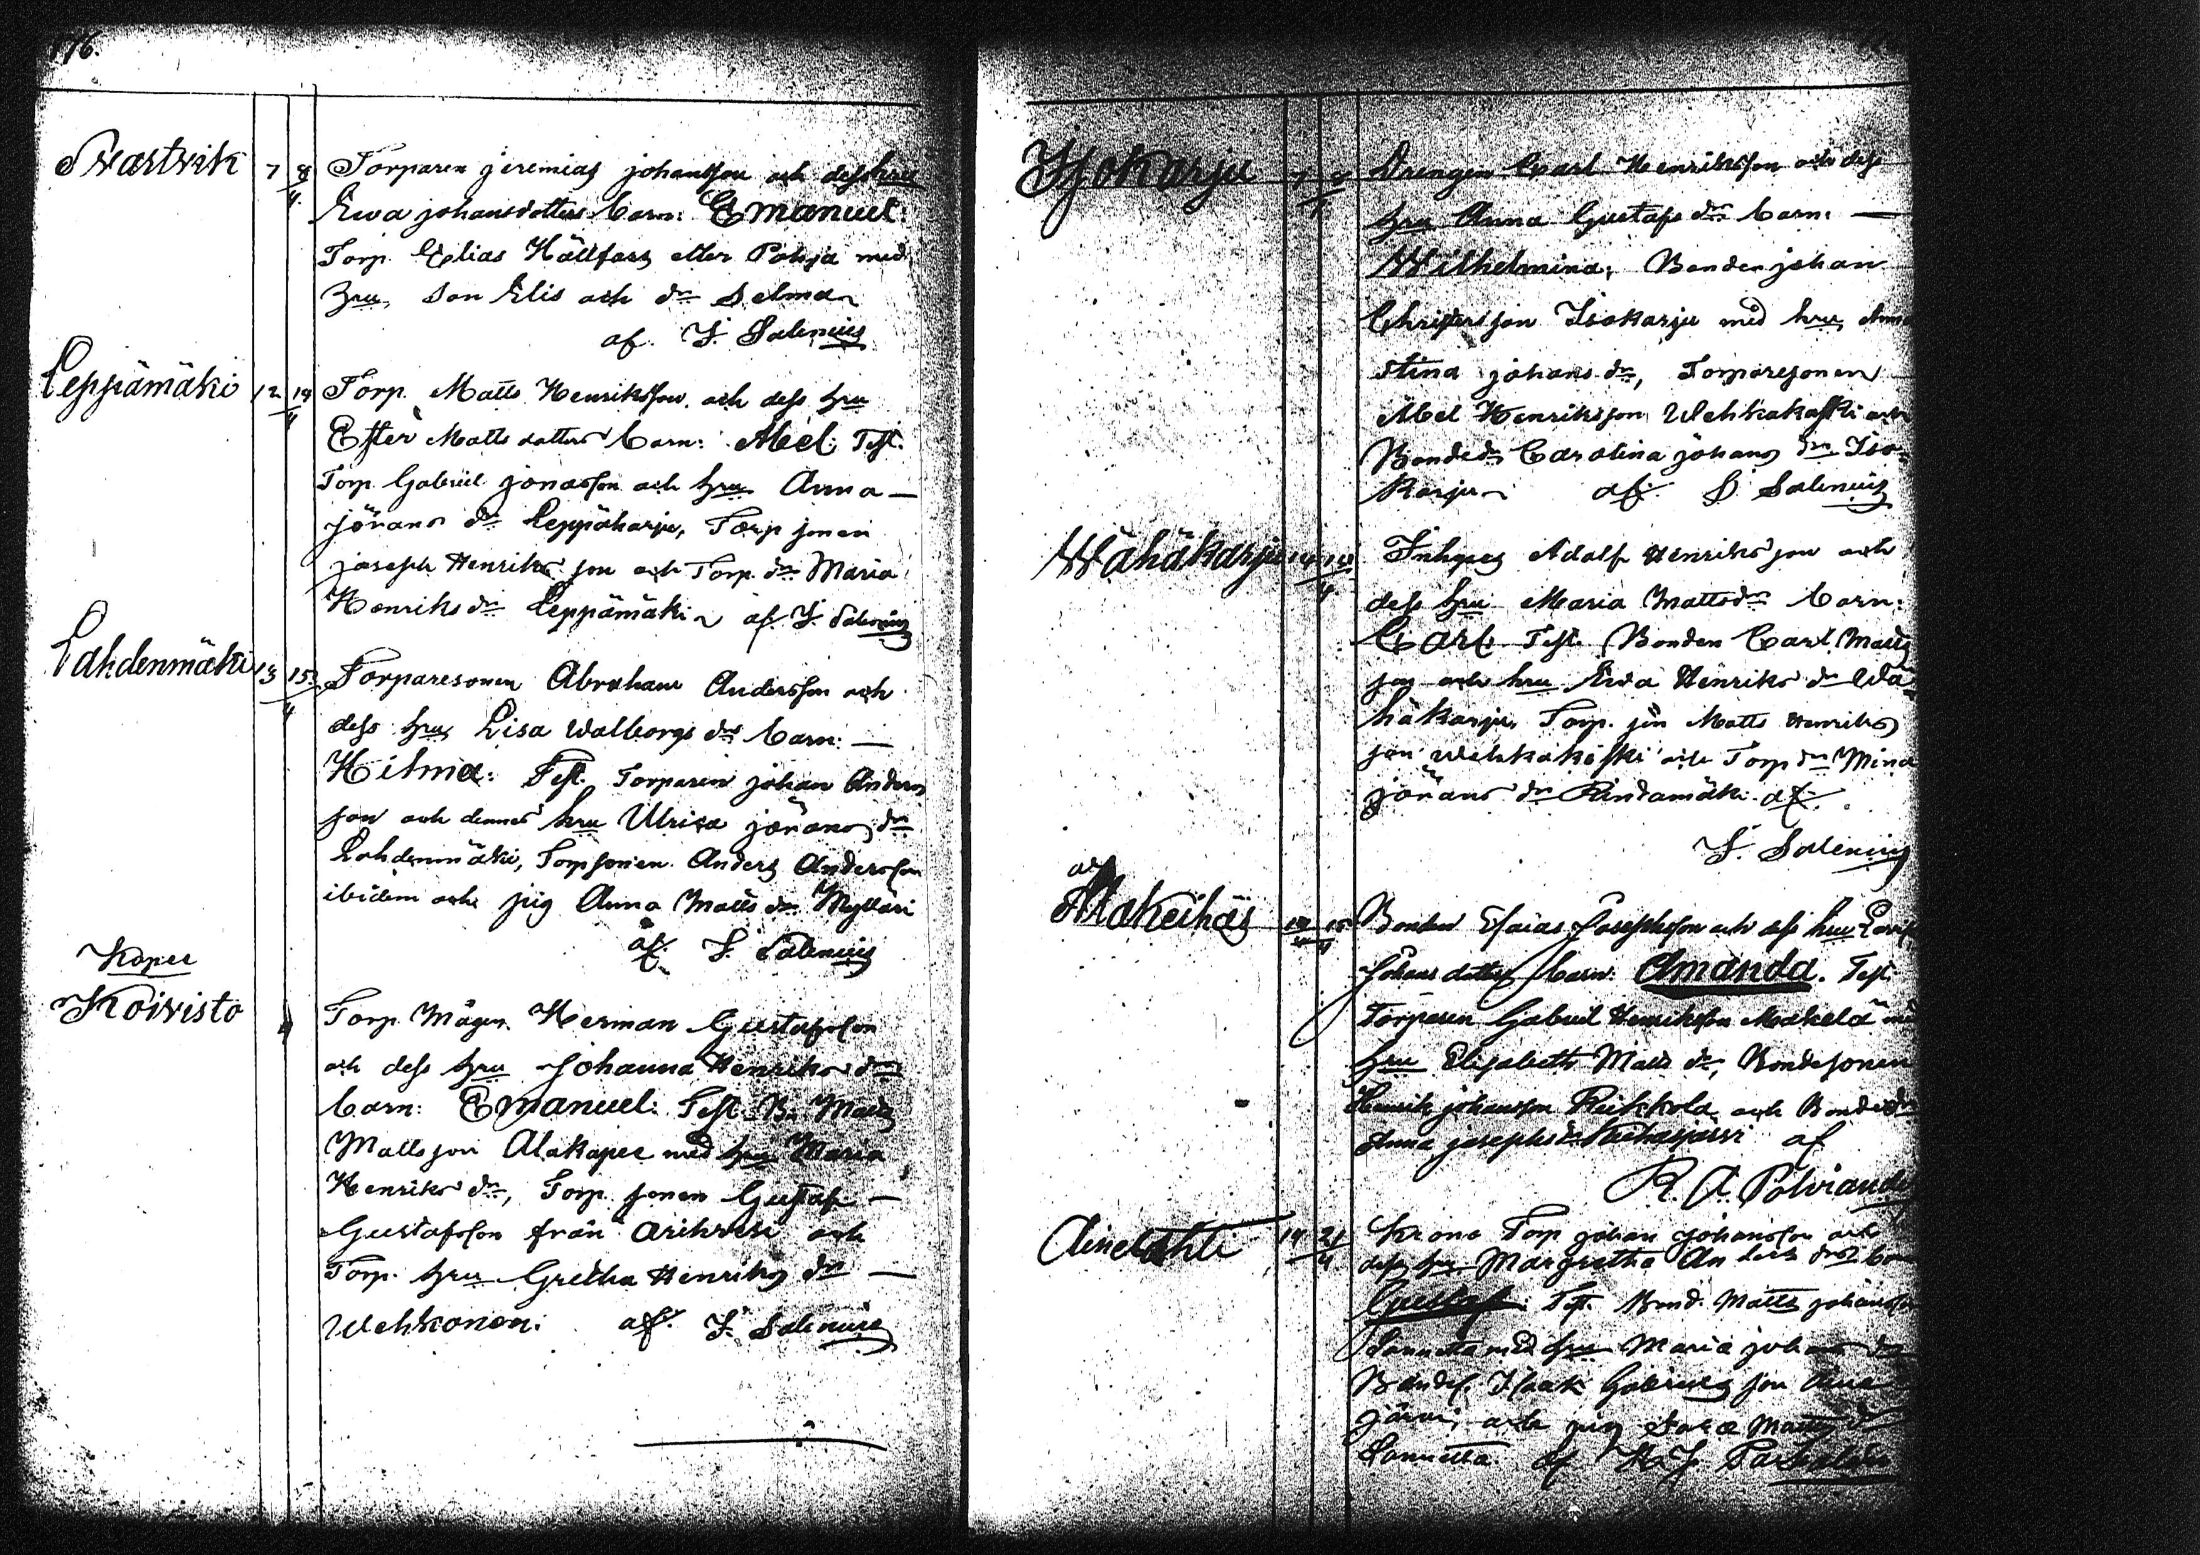 176.
Svartvik 7 8/4 Torparen Jeremias Johansson och dess hru
Ewa Johansdotters barn: Emanuel:
Torp. Elias Hällfors eller Pohja med
hru, son Elis och dr Selma
af. F. Salenius
Leppämäki 12 14/4 Torp. Matts Henriksson och dess hru
Ester Matts dotters barn: Abel: Test.
Torp. Gabriel Jonasson och hru Anna —
Jörans dr Leppäharju, Torp sonen
Joseph Henriks son och Torp. dr Maria
Henriks dr Leppämäki af. F. Salenius
Lahdenmäki 13 15/4 Torparesonen Abraham Andersson och
dess hru Lisa Walborgs drs barn: —
Hilma: Test. Torparen Johan Anders
son och dennes hru Ulrica Jörans dr
Lahdenmäki, Torpsonen Anders Andersson
ibidem och pig Anna Matts dr Myllari
af. F. Salenius
Kapee
Koivisto 4 Torp. Mågen Herman Gustafsson
och dess hru Johanna Henriks drs
barn: Emanuel: Test. Bn Matts
Mattsson Alakapee med hru Maria
Henriks dr, Torp. sonen Gustaf —
Gustafsson från Arikvesi och
Torp. hru Gretha Henriks dr —
Wehkonen: af. F. Salenius
Isokarju 7 Drengen Carl Henriksson och dess
hru Anna Gustafs drs barn: —
Wilhelmina: Bonden Johan
Christersson Isokarju med hru Anna
Stina Johans dr, Torparesonen
Abel Henriksson Wehkakoski och
Bonded. Carolina Johans dr Iso-
karju af. F. Salenius
Wähäkarju 14 15/4 Inhyses Adolf Henriks son och
dess hru Maria Mattsdrs barn:
Carl Test. Bonden Carl Matts
son och hru Ewa Henriks dr Wä
häkarju, Torp. sn Matts Henriks
son Wehkakoski och Torp dr Mina
Jörans dr Rindamäki af.
F. Salenius
Alakeihäs 15/4 Bonden Esaias Josephsson och dess hru Lovisa
Johans dotters barn: Amanda. Test.
Torparen Gabriel Henriksson Makelä med
hru Elisabeth Matts dr, Bondesonen
Henrik Johansson Ruhkola och Bonde dr
Anna Josephs dr af
R. A. Polviander
19 21/4 Krono Torp Johan Johansson och
dess hru Margretha Anders drs
Gustaf: Test. Bond. Matts Johansson
Lannetta med hru Maria Johans dr
Bondes. Isaak Gabriels son
järvi, och pig Sara Matts dr
Lannetta. af